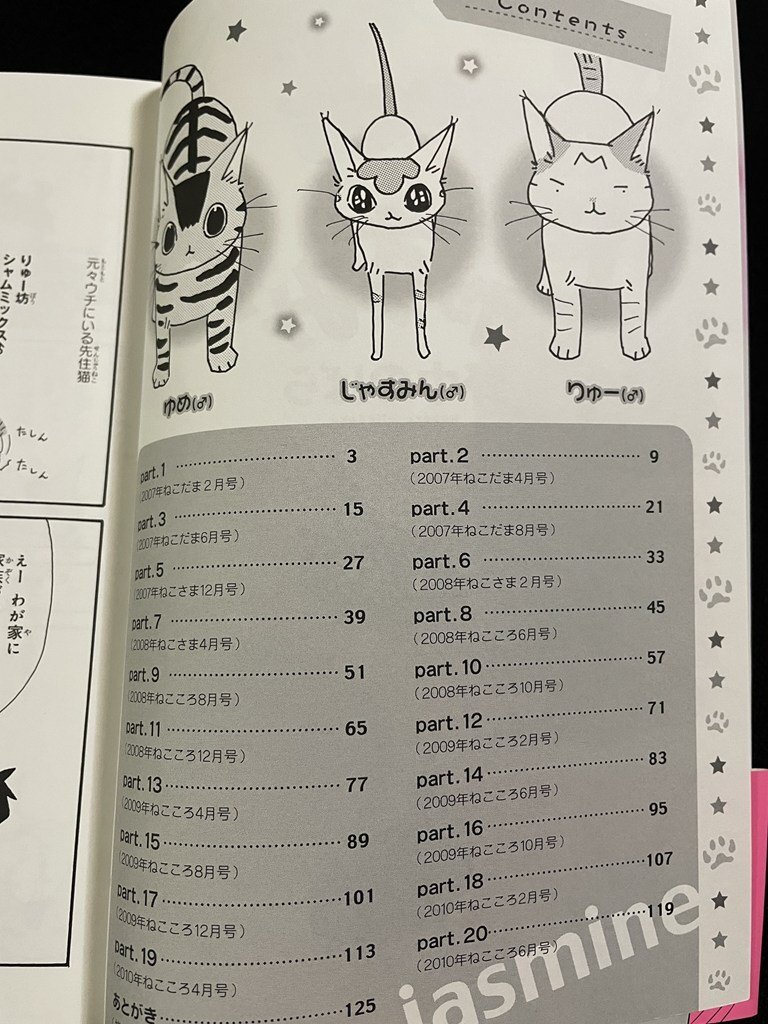 Contents
ゆめ(♂)
じゃすみん(♂)
りゅー(♂)
part.1 3
(2007年ねこだま2月号)
part.2 9
(2007年ねこだま4月号)
part.3 15
(2007年ねこだま6月号)
part.4 21
(2007年ねこだま8月号)
part.5 27
(2007年ねこさま12月号)
part.6 33
(2008年ねこさま2月号)
part.7 39
(2008年ねこさま4月号)
part.8 45
(2008年ねこころ6月号)
part.9 51
(2008年ねこころ8月号)
part.10 57
(2008年ねこころ10月号)
part.11 65
(2008年ねこころ12月号)
part.12 71
(2009年ねこころ2月号)
part.13 77
(2009年ねこころ4月号)
part.14 83
(2009年ねこころ6月号)
part.15 89
(2009年ねこころ8月号)
part.16 95
(2009年ねこころ10月号)
part.17 101
(2009年ねこころ12月号)
part.18 107
(2010年ねこころ2月号)
part.19 113
(2010年ねこころ4月号)
part.20 119
(2010年ねこころ6月号)
あとがき 125
jasmine
元々ウチにいる先住猫
りゅー坊
シャムミックス
たしん
たしん
えー わが家に